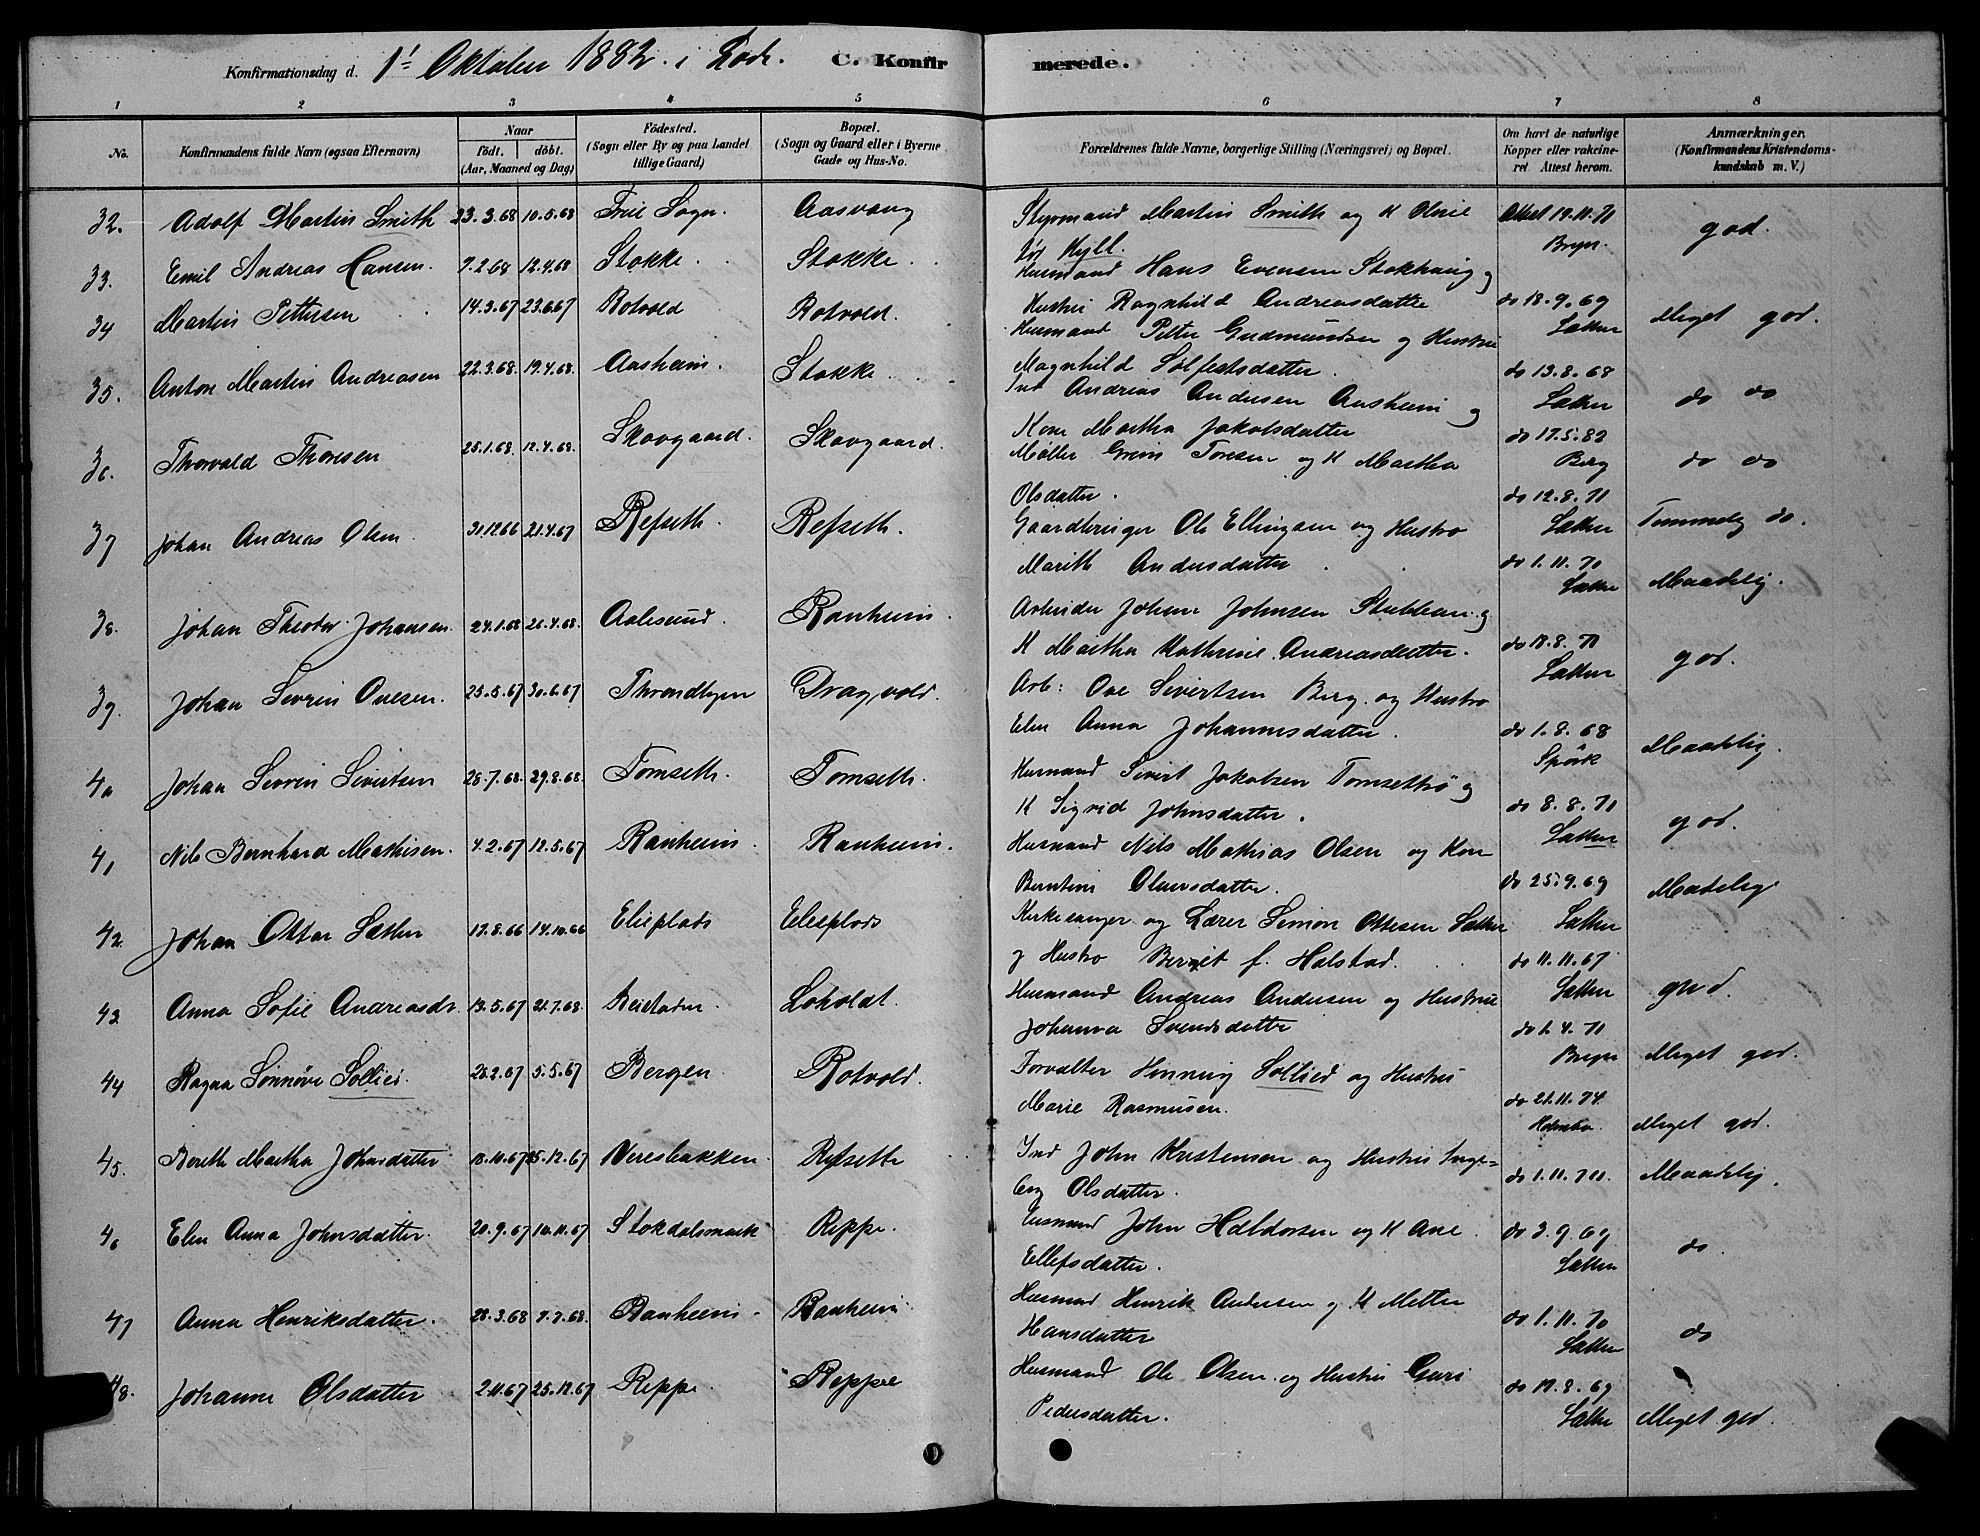 Konfirmationsdag d. 1ste Oktober 1882 i Lade. C. Konfirmerede.
1 2 3 4 5 6 7 8
No. Konfirmandens fulde Navn (ogsaa Efternavn) Naar født. døbt. (Aar, Maaned og Dag) Fødested. (Sogn eller By og paa Landet tillige Gaard) Bopæl. (Sogn og Gaard eller i Byerne Gade og Hus-No. Forældrenes fulde Navne, borgerlige Stilling (Næringsvei) og Bopæl. Om havt de naturlige Kopper eller vakcineret Attest herom. Anmærkninger. (Konfirmandens Kristendomskundskab m. V.)
32. Adolf Martin Smith 23.3.68 10.5.68 Sogn. Aasvang Styrmand Martin Smith og K Oline Attest 19.11.71 god.
før Hyll. Bryn.
33. Emil Andreas Hansen. 7.2.68 12.4.68 Stokke Stokke Husmand Hans Evensen Stokhaug og
Hustru Ragnhild Andreasdatter do 18.9.69 Sæther Meget god.
34 Martin Pettersen 14.3.67 23.6.67 Rotvold Rotvold. Husmand Peter Gudmundsen og Hustru
Magnhild Solfestsdatter. do 13.8.68 Sæther do do
35. Anton Martin Andreasen 22.3.68. 19.4.68. Aasheim. Stokke Ind Andreas Andersen Aasheim og
Kone Martha Jakobsdatter do 17.5.82 Berg do do
36. Thorvald Thoresen 25.1.68. 12.4.68. Skovgaard. Skovgaard. Møller Toresen og K Martha
Olsdatter. do 12.8.71 Sæther Temmelig do.
37 Johan Andreas Olsen 31.12.66 21.4.67 Refseth. Refseth. Gaardbruger Ole Ellingsen og Hustro
Marith Andersdatter do 1.11.70 Sæther Maadelig.
38. Johan Theodor Johansen. 24.1.68 26.4.68. Aalesund. Ranheim. Arbeider Johan Johnsen Stubban og
K Martha Kathrine Andreasdatter. do 18.8.71 Sæther god.
39. Johan Sevrin Ovesen. 25.5.67 30.6.67 Throndhjem Dragvold. Arb: Ove Sivertsen Berg og Hustro
Elen Anna Johannesdatter. do 1.8.68 Spörk Maadelig.
40 Johan Sevrin Sivertsen 26.7.68. 29.8.68. Tomseth. Tomseth. Husmand Sivert Jakobsen Tomsethrø og
K Sigrid Johnsdatter. do 8.8.71 Sæther god.
41 Nils Bernhard Mathisen. 4.2.67 12.5.67 Ranheim. Ranheim. Husmand Nils Mathias Olsen og Kone
Berntine Olausdatter. do 25.9.69 Sæther Madelig
42. Johan Ottar Sæther 17.8.66 14.10.66 Elieplads Elieplads Kirkesanger og Lærer Simon Ottesen Sæther
og Hustro Berret f. Halstad. do 11.11.67 Sæther god.
43 Anna Sofie Andreasdr. 13.5.67 21.7.68. Beistaden Loholdt Husmand Andreas Andersen og Hustru
Johanna Svendsdatter do 1.4.71 Bryn Meget god.
44 Ragna Sønnøve Sollied. 28.2.67 5.5.67 Bergen Rotvold. Forvalter Henning Sollied og Hustru
Marie Rasmusen. do 21.11.74 Meget god.
45. Bereth Martha Johnsdatter 18.10.67 25.12.67 Veresbakken Refseth Ind John Kristensen og Hustru Inge=
berg Olsdatter. do 1.11.70. Maadelig.
46 Elen Anna Johnsdatter. 20.9.67 10.11.67 Stokdalsmark Reppe. Husmand John Haldorsen og K Ane
Ellefsdatter. do 3.9.69 Sæther do
47 Anna Henriksdatter. 28.3.68 7.7.68. Ranheim Ranheim Husmand Henrik Andersen og K Mette
Hansdatter do 1.11.70 Sæther do
48. Johanne Olsdatter 2.11.67 25.12.67 Reppe. Reppe Husmand Ole Olsen og Hustru Guri
Pedersdatter. do 19.8.69 Sæther Meget god.